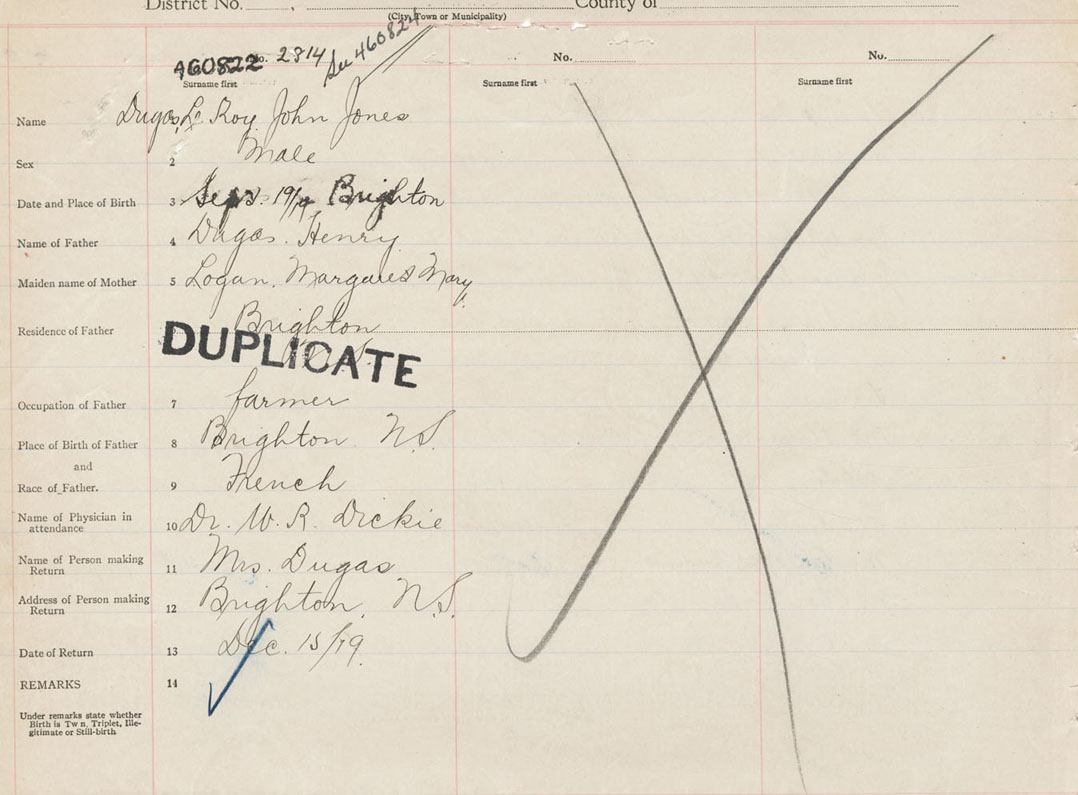 District No. ........, ........ County of
(City, Town or Municipality)
460822 No. 2814 See 460824
Surname first
No. ........
Surname first
No. ........
Surname first
Name Dugas, Le Roy John Jones
Sex 2 Male
Date and Place of Birth 3 Sept. 19/19 Brighton
Name of Father 4 Dugas. Henry
Maiden name of Mother 5 Logan. Margaret Mary
Residence of Father Brighton
N.S.
DUPLICATE
Occupation of Father 7 farmer
Place of Birth of Father 8 Brighton N.S.
and
Race of Father. 9 French
Name of Physician in
attendance 10 Dr. W. R. Dickie
Name of Person making
Return 11 Mrs. Dugas
Address of Person making
Return 12 Brighton, N.S.
Date of Return 13 Dec. 15/19.
REMARKS 14
Under remarks state whether
Birth is Tw n, Triplet, Ille-
gitimate or Still-birth